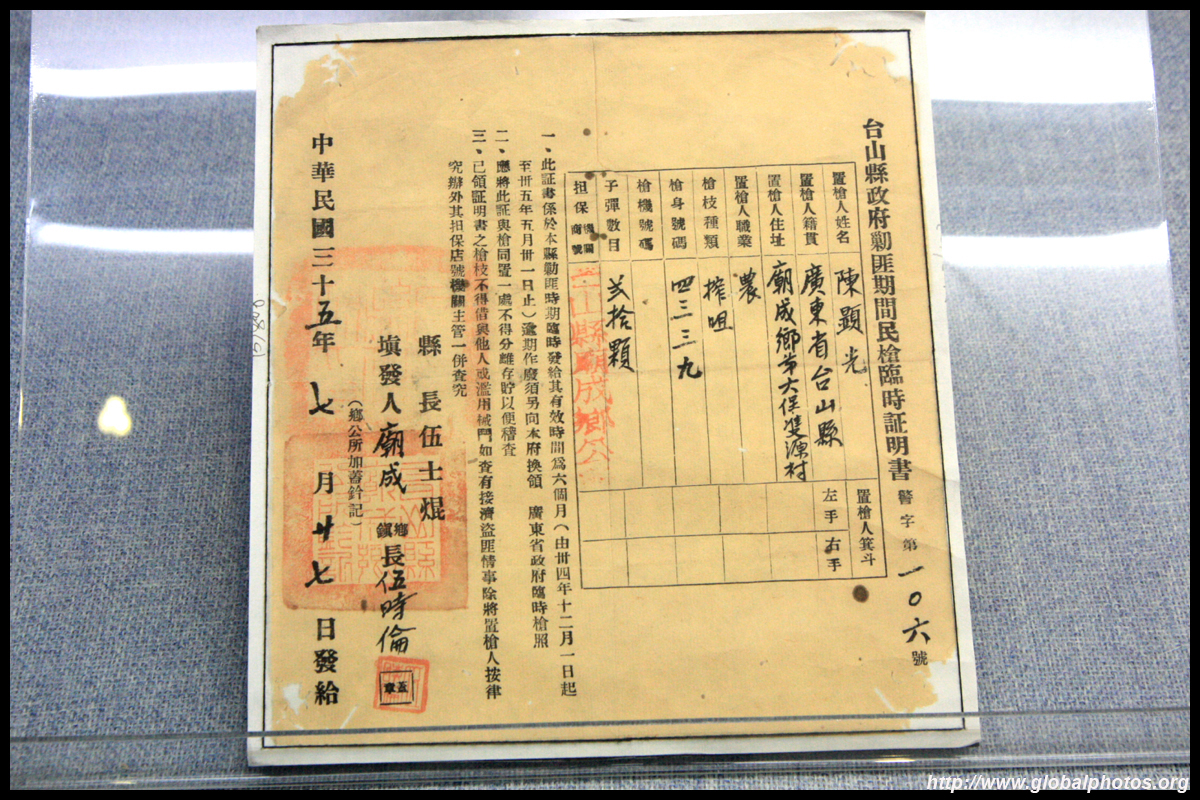 台山縣政府勦匪期間民槍臨時証明書 警字第一〇六號
置槍人姓名 陳顯光
置槍人籍貫 廣東省台山縣
置槍人住址 廟成鄉第六保雙源村
置槍人職業 農
槍枝種類 搾咀
槍身號碼 四三三九
槍機號碼
子彈數目 弍拾顆
担保機關商號
台山縣廟成鄉公
置槍人箕斗
左手
右手
一、此証書係於本縣勦匪時期臨時發給其有效時間爲六個月（由卅四年十二月一日起
至卅五年五月卅一日止）逾期作廢須另向本府換領 廣東省政府臨時槍照
二、應將此証與槍同置一處不得分離存貯以便稽查
三、已領証明書之槍枝不得借與他人或濫用械鬥如查有接濟盜匪情事除將置槍人按律
究辦外其担保店號機關主管一併查究
縣長伍士焜
塡發人廟成鄉鎭長伍時倫
蓋章
（鄉公所加蓋鈐記）
中華民國三十五年七月廿七日發給
http://www.globalphotos.org